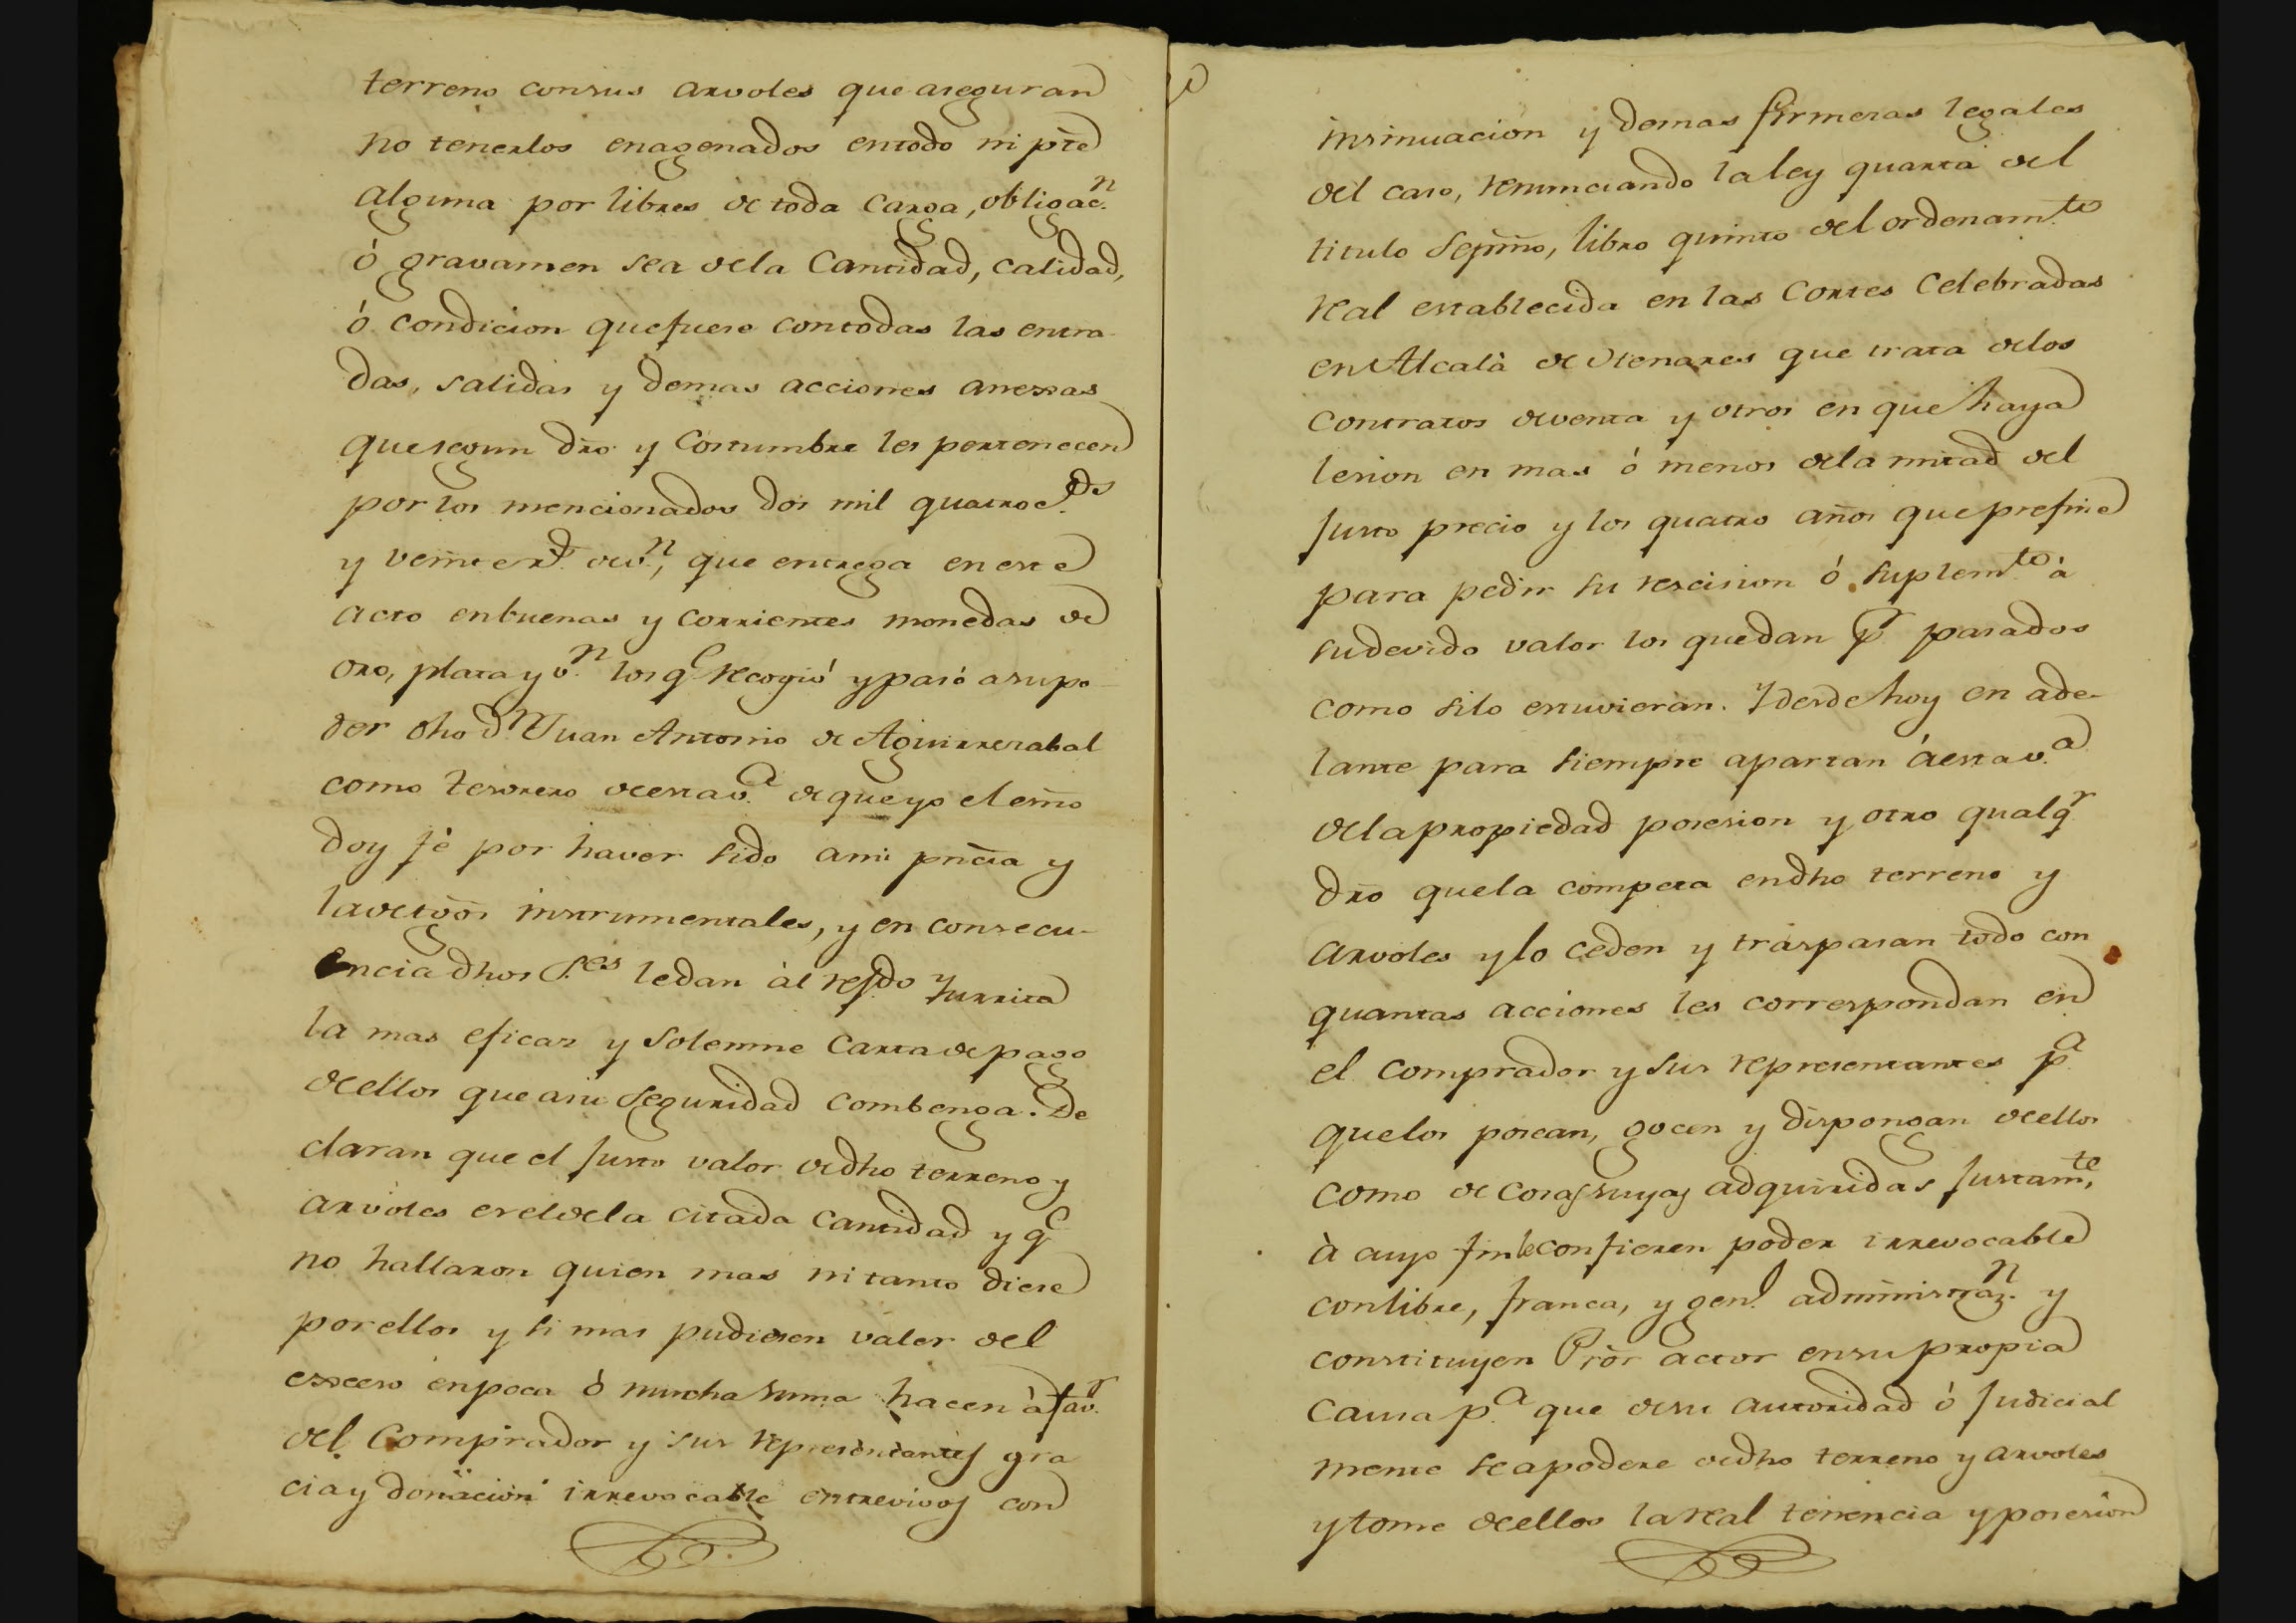 terreno consus arvoles que aseguran
no tenerlos enagenados entodo ni pte
alguna por libres de toda carga, obligac.n
ó gravamen sea dela Cantidad, calidad,
ó condicion quefuese contodas las entra
das, salidas y demas acciones anexas
quesegun dro y Costumbre les pertenecen
por los mencionados dos mil quatroc.dos
y veinte r.s dev.n, que entrega en este
acto enbuenas y corrientes monedas de
oro, plata y v.n los q.e recogió y pasó asupo
der dho d.n Juan Antonio de Aguirrezabal
como tesorero deesta v.a de que yo el esno
doy fé por haver sido ami pncia y
la de tgos instrumentales, y en consecu-
encia dhos S.res ledan àl refdo Yurrita
la mas eficaz y solemne Carta de pago
deellos que asu seguridad combenga. De
claran que el justo valor dedho terreno y
arvoles es el dela citada cantidad y q.e
no hallaron quien mas ni tanto diese
porellos y si mas pudiesen valer del
exceso enpoca ó mucha suma hacen à fav.r
del Comprador y sus representantes gra
cia y donacion irrevocable entrevivos con
insinuacion y demas firmezas legales
del caso, renunciando la ley quarta del
titulo sepmo, libro quinto del ordenam.to
real establecida en las Cortes Celebradas
en Alcalà de Henares que trata delos
contratos deventa y otros en que haya
lesion en mas ó menos dela mitad del
justo precio y los quatro años que prefine
para pedir su rescision ó suplem.to à
sudevido valor los quedan p.r pasados
como silo estuvieran. Y desde hoy en ade-
lante para siempre apartan áesta v.a
dela propiedad posesion y otro qualq.r
dro quela competa endho terreno y
arvoles y lo ceden y traspasan todo con
quantas acciones les correspondan en
el comprador y sus representantes p.a
quelos posean, gocen y dispongan deellos
como de cosas suyas adquiridas justam.te,
à cuyo fin le confieren poder irrevocable
conlibre, franca, y gen.l administraz.n y
constituyen Pror actor ensu propia
causa p.a que desu autoridad ó judicial
mente seapodere dedho terreno y arvoles
y tome deellos la real tenencia y posesion